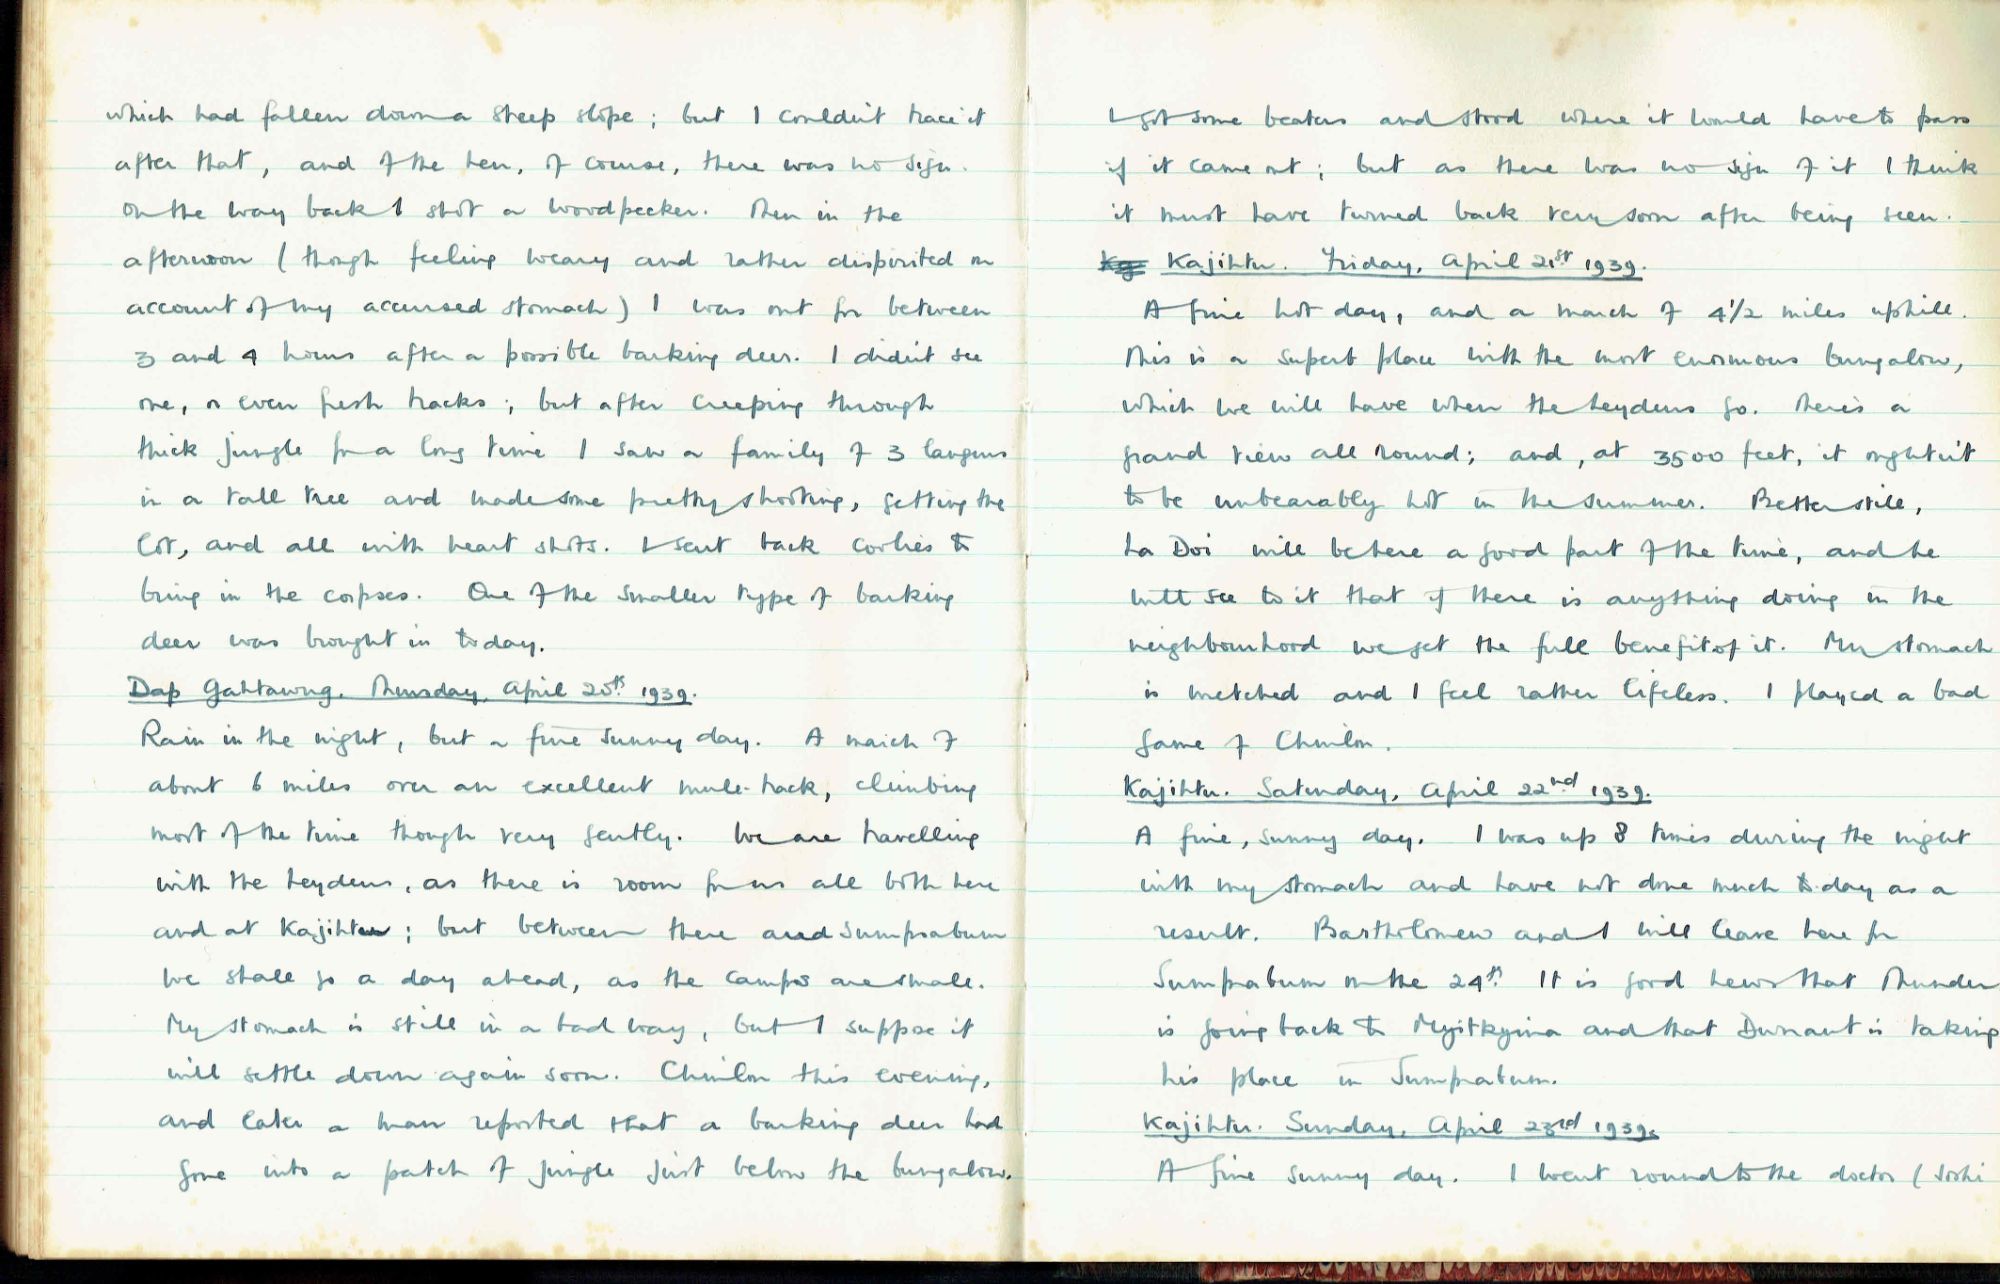 which had fallen down a steep slope; but I couldn't trace it
after that, and of the hen, of course, there was no sign.
On the way back I shot a woodpecker. Then in the
afternoon (though feeling weary and rather dispirited on
account of my accursed stomach) I was out for between
3 and 4 hours after a possible barking deer. I didn't see
one, or even fresh tracks; but after creeping through
thick jungle for a long time I saw a family of 3 langurs
in a tall tree and made some pretty shooting, getting the
lot, and all with heart shots. I sent back coolies to
bring in the corpses. One of the smaller type of barking
deer was brought in today.
Dap Gahtawng. Thursday, April 20th. 1939.
Rain in the night, but a fine sunny day. A march of
about 6 miles over an excellent mule-track, climbing
most of the time though very gently. We are travelling
with the Leydens, as there is room for us all both here
and at Kajihtu; but between there and Sumprabum
we shall go a day ahead, as the camps are small.
My stomach is still in a bad way, but I suppose it
will settle down again soon. Chinlon this evening,
and later a man reported that a barking deer had
gone into a patch of jungle just below the bungalow.
I got some beaters and stood where it would have to pass
if it came out; but as there was no sign of it I think
it must have turned back very soon after being seen.
Kajihtu. Friday, April 21st 1939.
A fine hot day, and a march of 4 1/2 miles uphill.
This is a superb place with the most enormous bungalow,
which we will have when the Leydens go. There's a
grand view all round; and, at 3500 feet, it oughtn't
to be unbearably hot in the summer. Better still,
La Doi will be here a good part of the time, and he
will see to it that if there is anything doing in the
neighbourhood we get the full benefit of it. My stomach
is wretched and I feel rather lifeless. I played a bad
game of Chinlon.
Kajihtu. Saturday, April 22nd 1939.
A fine, sunny day. I was up 8 times during the night
with my stomach and have not done much to-day as a
result. Bartholomew and I will leave here for
Sumprabum on the 24th. It is good news that Thunder
is going back to Myitkyina and that Durrant is taking
his place in Sumprabum.
Kajihtu. Sunday, April 23rd 1939.
A fine sunny day. I went round to the doctor (Joshi